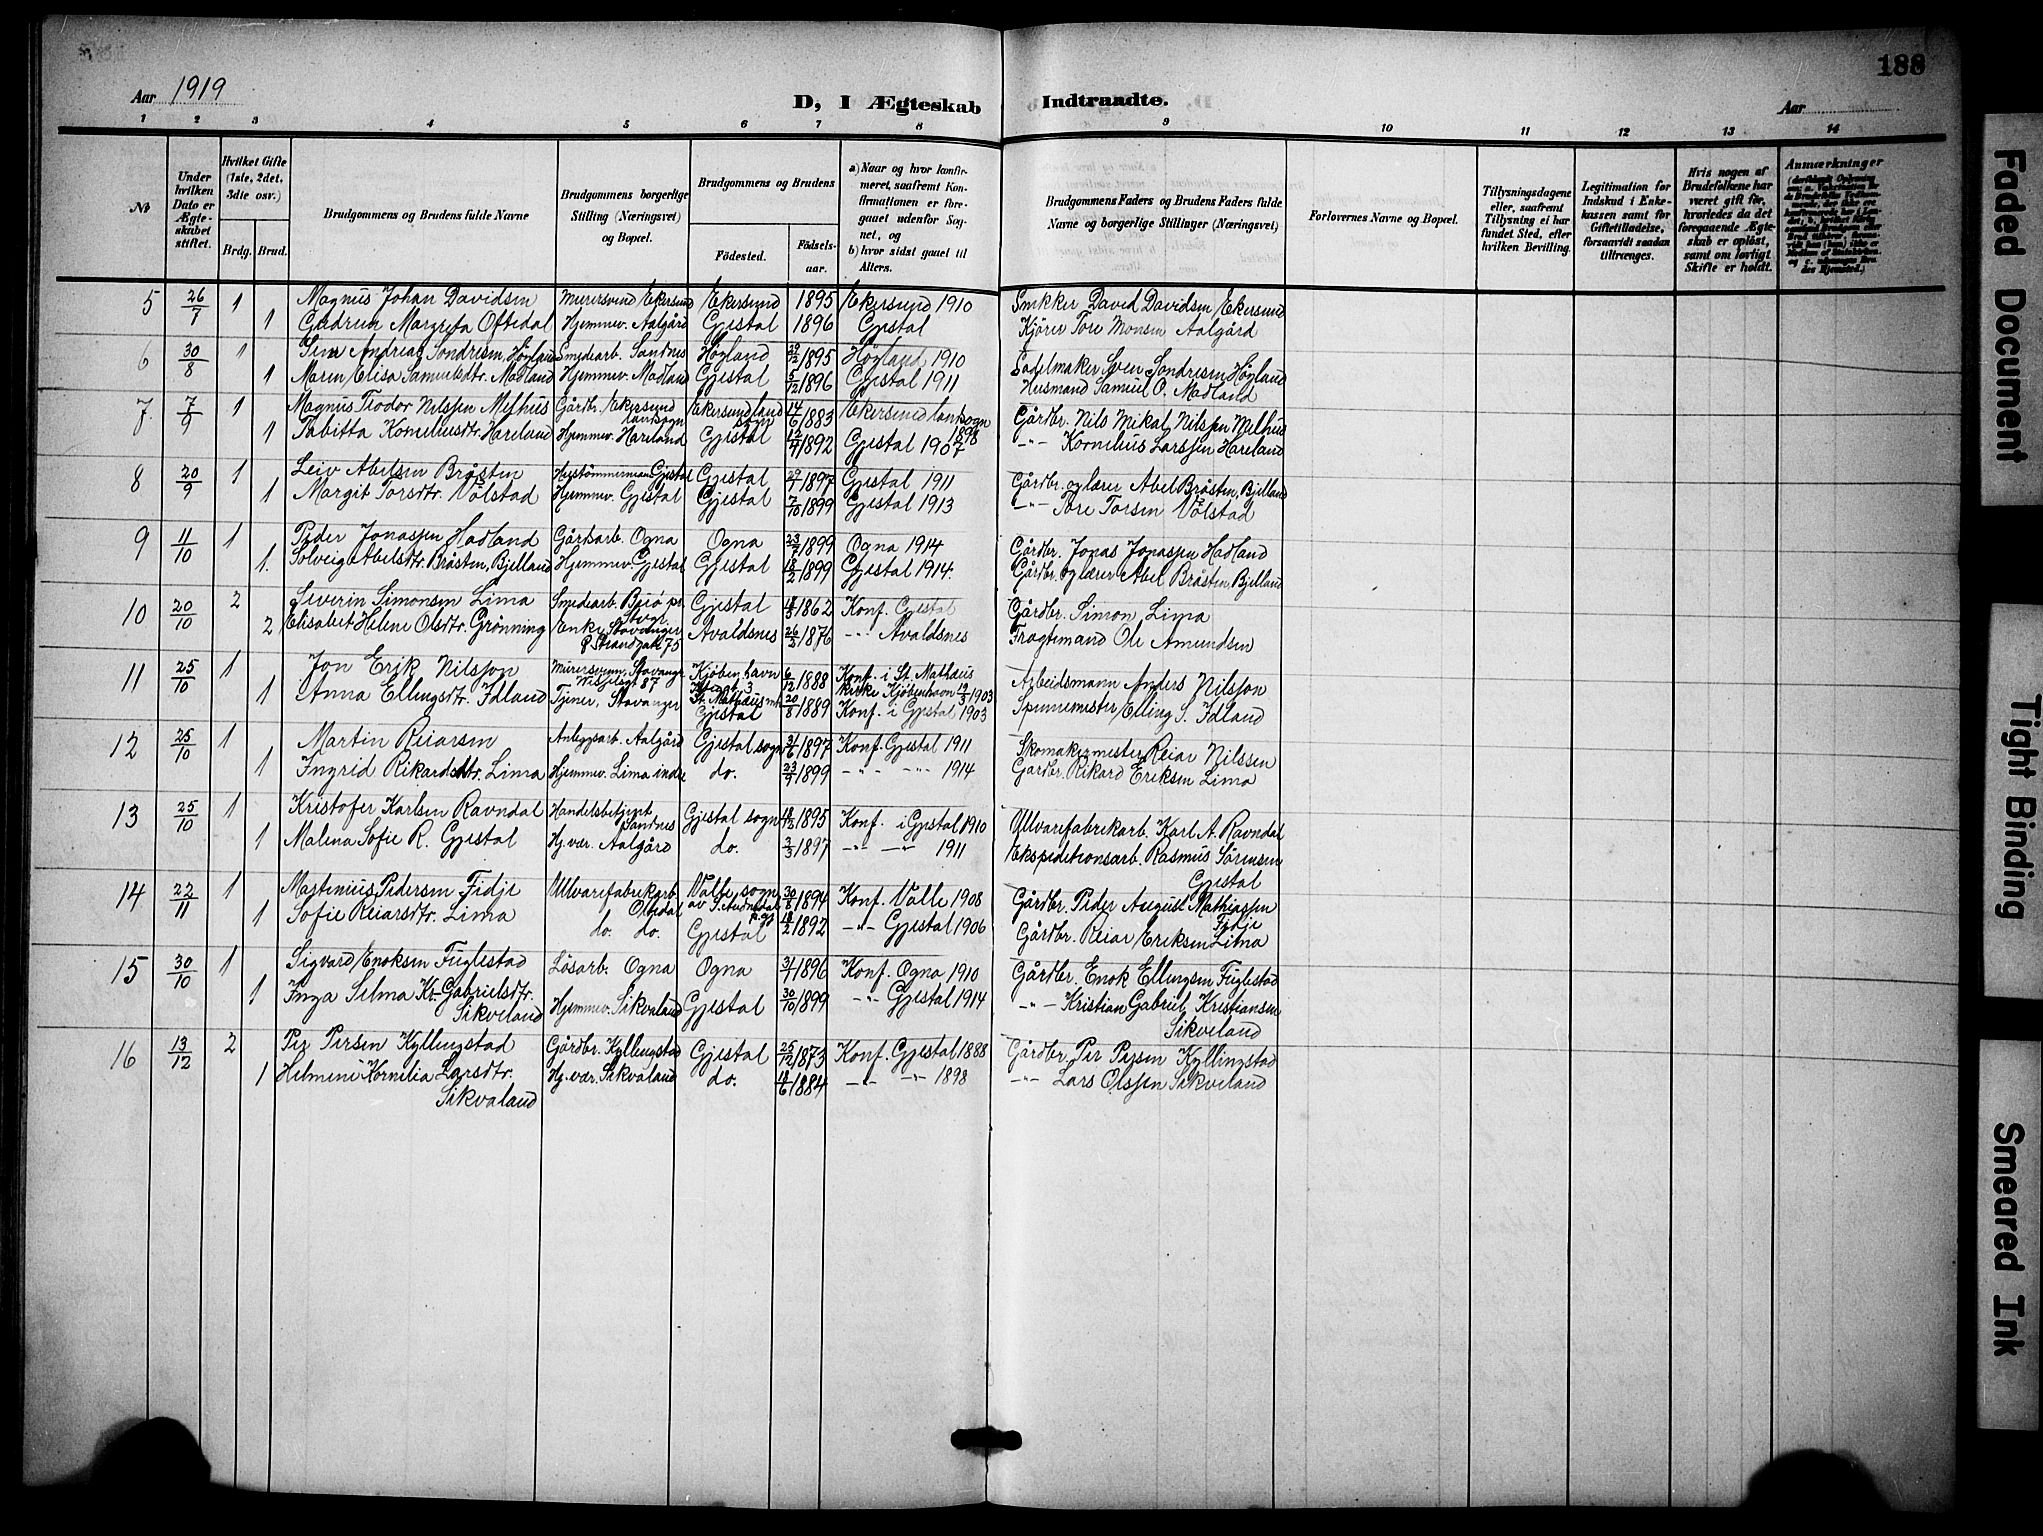 188
Aar 1919
D, I Ægteskab Indtraadte.
Aar
1 2 3 4 5 6 7 8 9 10 11 12 13 14
No
Under hvilken Dato er Ægteskabet stiftet.
Hvilket Gifte (1ste, 2det, 3die osv.)
Brdg. Brud.
Brudgommens og Brudens fulde Navne
Brudgommens borgerlige Stilling (Næringsvei) og Bopæl.
Brudgommens og Brudens
Födested.
Födsels-aar.
a) Naar og hvor konfirmeret, saafremt Konfirmationen er foregaaet udenfor Sognet, og
b) hvor sidst gaaet til Alters.
Brudgommens Faders og Brudens Faders fulde Navne og borgerlige Stillinger (Næringsvei)
Forlovernes Navne og Bopæl.
Tillysningsdagene eller, saafremt Tillysning ei har fundet Sted, efter hvilken Bevilling.
Legitimation for Indskud i Enkekassen samt for Giftetilladelse, forsaavidt saadan tiltrænges.
Hvis nogen af Brudefolkene har været gift för, hvorledes da det foregaaende Ægteskab er oplöst, samt om lovligt Skifte er holdt.
Anmærkninger
5 26/7 1 Magnus Johan Davidsen Murersvend Ekersund Ekersund 1895 Ekersund 1910 Snikker David Davidsen Ekersund
1 Gudrun Margreta Oftedal Hjemmev. Aalgård Gjestal 1896 Gjestal Kjörer Tore Monsen Aalgård
6 30/8 1 Andreas Sondresen Höyland Smedearb. Sandnes Höyland 29/2 1895 Höyland 1910 Sadelmaker Sven Sondresen Höyland
1 Maren Elisa Samuelsdtr. Madland Hjemmev. Madland Gjestal 5/12 1896 Gjestal 1911 Husmand Samuel O. Madland
7 7/9 1 Magnus Teodor Nilssen Melhus Gårdbr. Ekersund landsogn Ekersund land sogn 14/6 1883 Ekersund landsogn 1898 Gårdbr. Nils Mikal Nilssen Melhus
1 Tabitta Korneliusdtr. Hareland Hjemmev. Hareland Gjestal 12/4 1892 Gjestal 1907 -"- Kornelius Larssen Hareland
8 20/9 1 Leiv Abelsen Bråsten Hustömmerman Gjestal Gjestal 29/7 1897 Gjestal 1911 Gårdbr. og lærer Abel Bråsten, Bjelland
1 Margit Torsdtr. Völstad Hjemmev. Gjestal Gjestal 7/10 1899 Gjestal 1913 -"- Tore Torsen Völstad
9 11/10 1 Peder Jonassen Hadland Gårdsarb. Ogna Ogna 23/7 1899 Ogna 1914 Gårdbr. Jonas Jonassen Hadland
1. Solveig Abelsdtr. Bråsten, Bjelland Hjemmev. Gjestal Gjestal 18/2 1899 Gjestal 1914. Gårdbr. og lærer Abel Bråsten, Bjelland
10 20/10 2 Severin Simonsen Lima Smedearb. Buö pr. Stvgr. Gjestal 1862 Konf. Gjestal Gårdbr. Simon Lima
2 Elisabet Helene Olsdtr. Grönning Enke Stavanger Strandgate 75 Avaldsnes 26/2 1876 -"- Avaldsnes Fragtemand Ole Amundsen
11 25/10 1 Jon Erik Nilsson Murersvend Stavanger 87 Kjöbenhavn St. Mathæus 6/12 1888 Konf. i St. Mathæus kirke Kjöbenhavn 1903 Arbeidsmann Anders Nilsson
1 Anna Ellingsdtr. Idland Tjener, Stavanger Gjestal 20/8 1889 Konf. i Gjestal 1903 Spinnemester Elling S. Idland
12 25/10 1 Martin Reiarsen Anleggsarb. Aalgård Gjestal sogn 3/6 1897 Konf. Gjestal 1911 Skomakermester Reiar Nilssen
1 Ingrid Rikardsdtr. Lima Hjemmev. Lima indre do. 23/9 1899 -"- -"- 1914 Gardbr. Rikard Eriksen Lima
13 25/10 1 Kristofer Karlsen Ravndal Handelsbetjent Sandnes Gjestal sogn 18/12 1895 Konf. i Gjestal 1910 Ullvarefabrikarb. Karl A. Ravndal
1 Malena Sofie R. Gjestal Hj.vær. Aalgård do. 2/3 1897 -"- -"- 1911 Ekspeditionsarb. Rasmus Sörensen Gjestal
14 22/11 1 Martinius Pedersen Fidje Ullvarefabrikarb. Oltedal Valle sogn av S. Audnedal p.gj. 30/8 1894 Konf. Valle 1908 Gårdbr. Peder August Mathiassen Fidje
1 Sofie Reiarsdtr. Lima do. do. Gjestal 18/2 1892 -"- Gjestal 1906 Gårdbr. Reiar Eriksen Lima
15 30/10 1 Sigvard Enoksen Fuglestad Lösarb. Ogna Ogna 1896 Konf. Ogna 1910 Gårdbr. Enok Ellingsen Fuglestad
1 Inga Selma Kr. Gabrielsdtr. Sikveland Hjemmev. Sikvaland Gjestal 30/10 1899 -"- Gjestal 1914 -"- Kristian Gabriel Kristiansen Sikveland
16 13/12 2 Per Persen Kyllingstad Gårdbr. Kyllingstad Gjestal 25/12 1873 Konf. Gjestal 1888 Gårdbr. Per Persen Kyllingstad
1 Helmine Kornelia Larsdtr. Sikvaland Hj.vær. Sikvaland do. 18/6 1884 -"- -"- 1898 -"- Lars Olssen Sikveland
Faded Document
Tight Binding
Smeared Ink